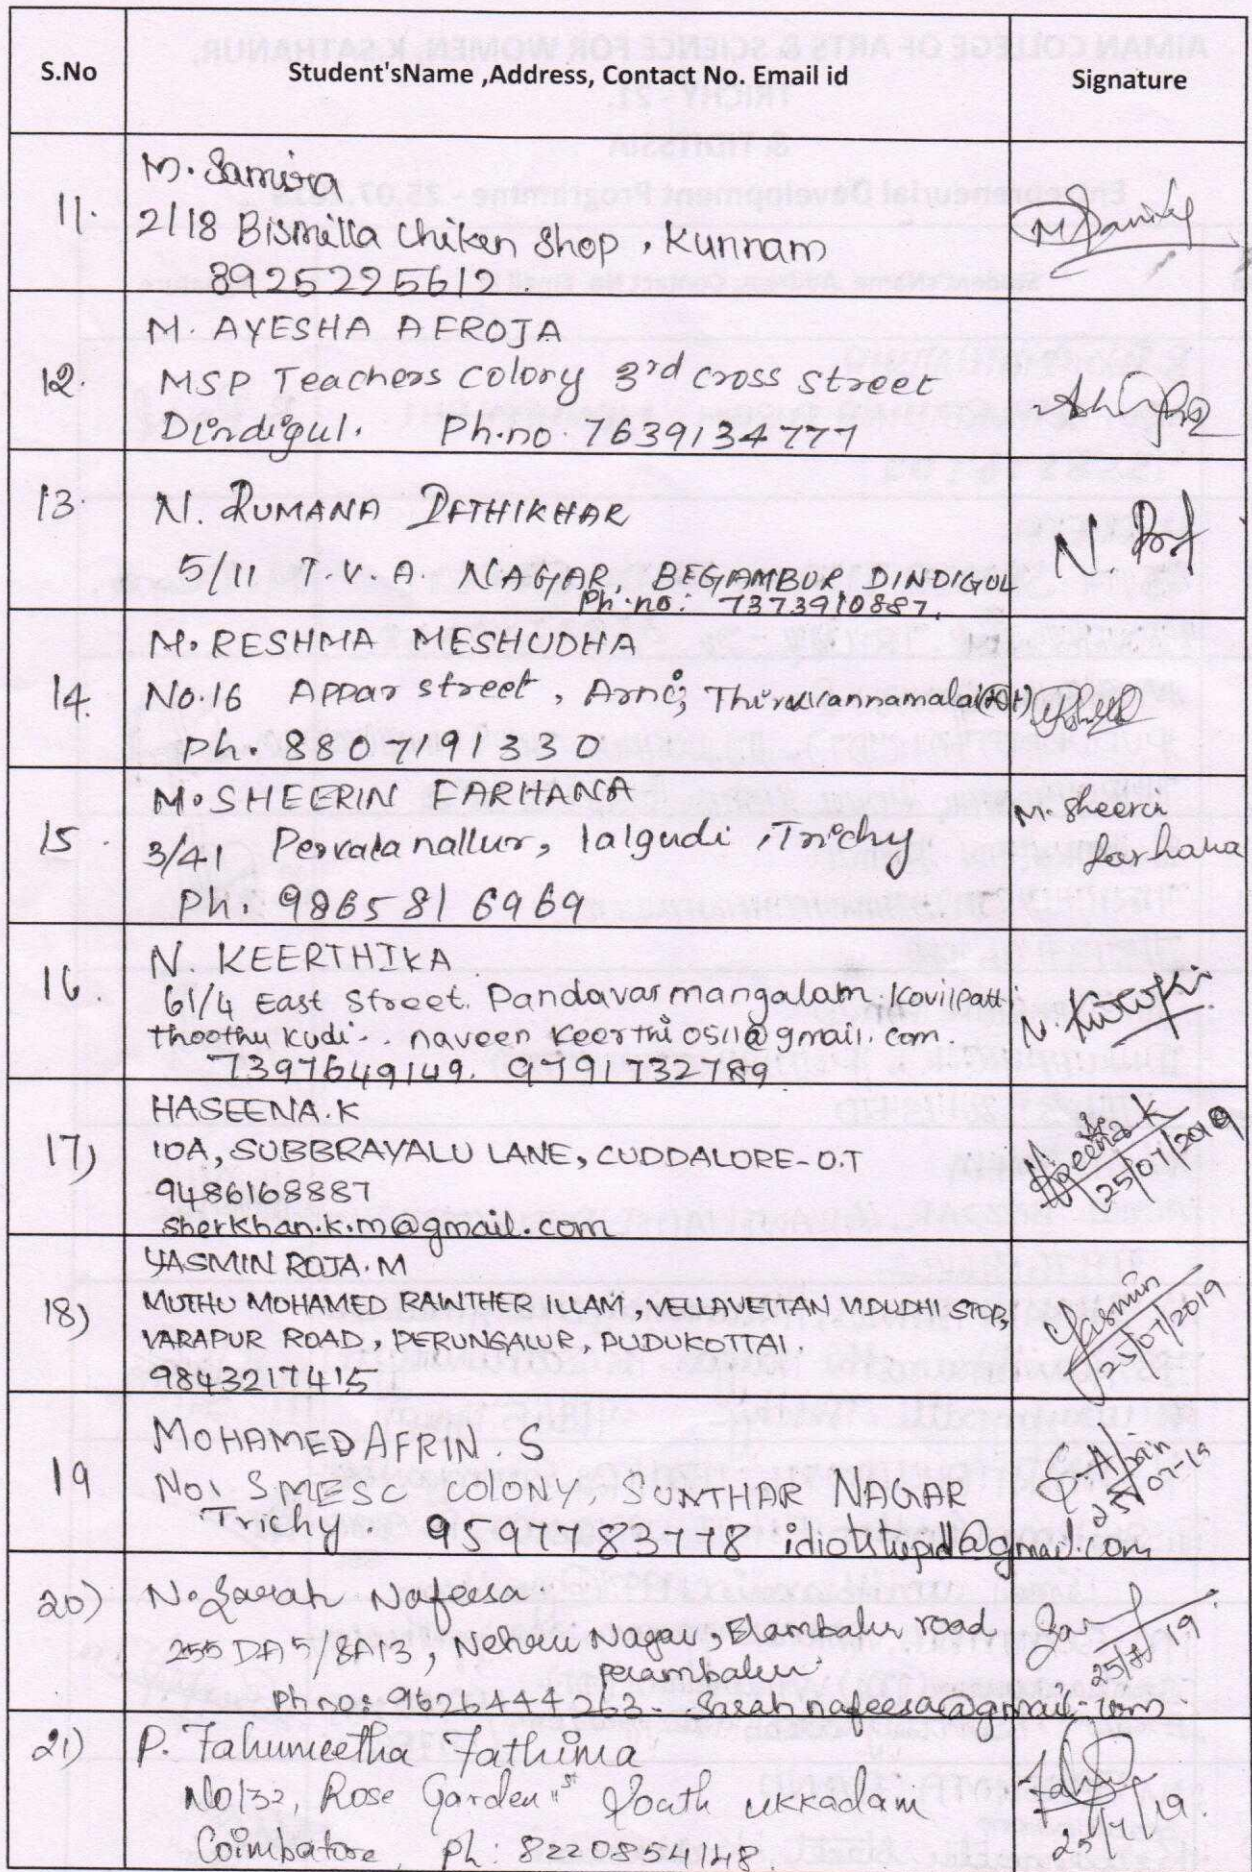 S.No Student'sName ,Address, Contact No. Email id Signature
11. M. Samira
2/18 Bismilla chiken shop, Kunnam
8925225612.
M. AYESHA AFROJA
12. MSP Teachers colony 3rd cross street
Dindigul. Ph.no. 7639134777
13. N. RUMANA IFTHIKHAR
5/11 T.V.A. NAGAR, BEGAMBUR DINDIGUL
Ph.no: 7373910887.
M. RESHMA MESHUDHA
14. No.16 Appar street, Arni, Thiruvannamalai(Dt)
Ph. 8807191330
M. SHEERIN FARHANA M. Sheerin
15. 3/41 Pervalanallur, lalgudi, Trichy farhana
Ph. 9865816969
16. N. KEERTHIKA
61/4 East Street. Pandavarmangalam. Kovilpatti
thoothukudi. naveen keerthi 0511@gmail.com.
7397649149. 9791732789
HASEENA.K
17) 10A, SUBBRAYALU LANE, CUDDALORE-O.T Haseena.K
9486168887 25/07/2019
sherkhan.k.m@gmail.com
YASMIN ROJA.M
18) MUTHU MOHAMED RAWTHER ILLAM, VELLAVETTAN VIDUDHI STOP, Yasmin
VARAPUR ROAD, PERUNGALUR, PUDUKOTTAI. 25/07/2019
9843217415
MOHAMED AFRIN. S S. Afrin
19 No1 SMESC COLONY, SUNTHAR NAGAR 25-07-19
Trichy. 9597783778 @gmail.com
20) N. Sarah Nafeesa.
255 DA5/8A13, Nehru Nagar, Elambalur road
perambalur 25/7/19
Ph no: 9626444263 - Sarahnafeesa@gmail.com
21) P. Fahumeetha Fathima
No/32, Rose Garden South ukkadam
Coimbatore, Ph: 8220854148. 25/7/19.